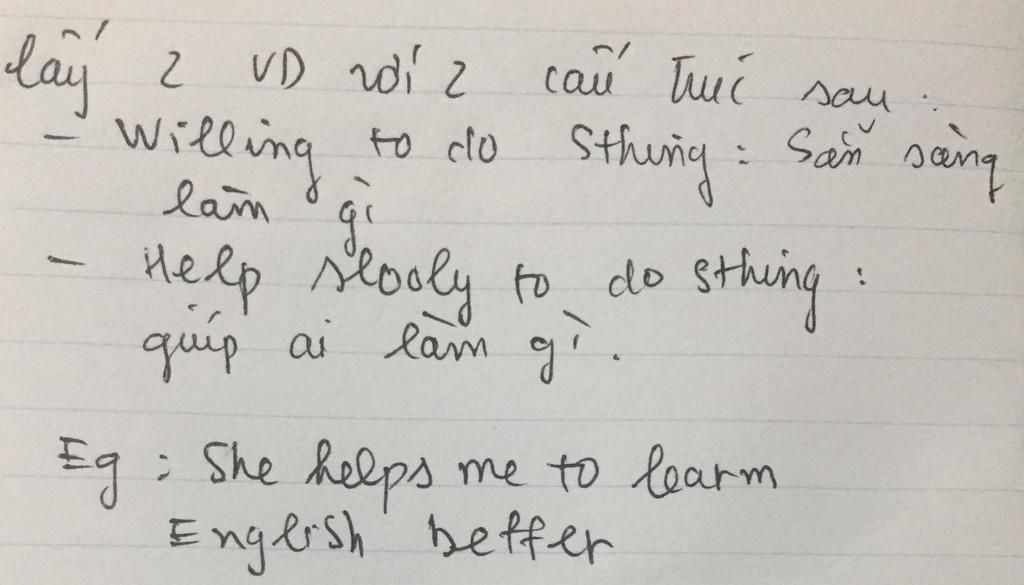 lấy 2 VD với 2 cấu trúc sau :
- Willing to do sthing : Sẵn sàng
làm gì
- Help sbody to do sthing :
giúp ai làm gì .
Eg : She helps me to learn
English better